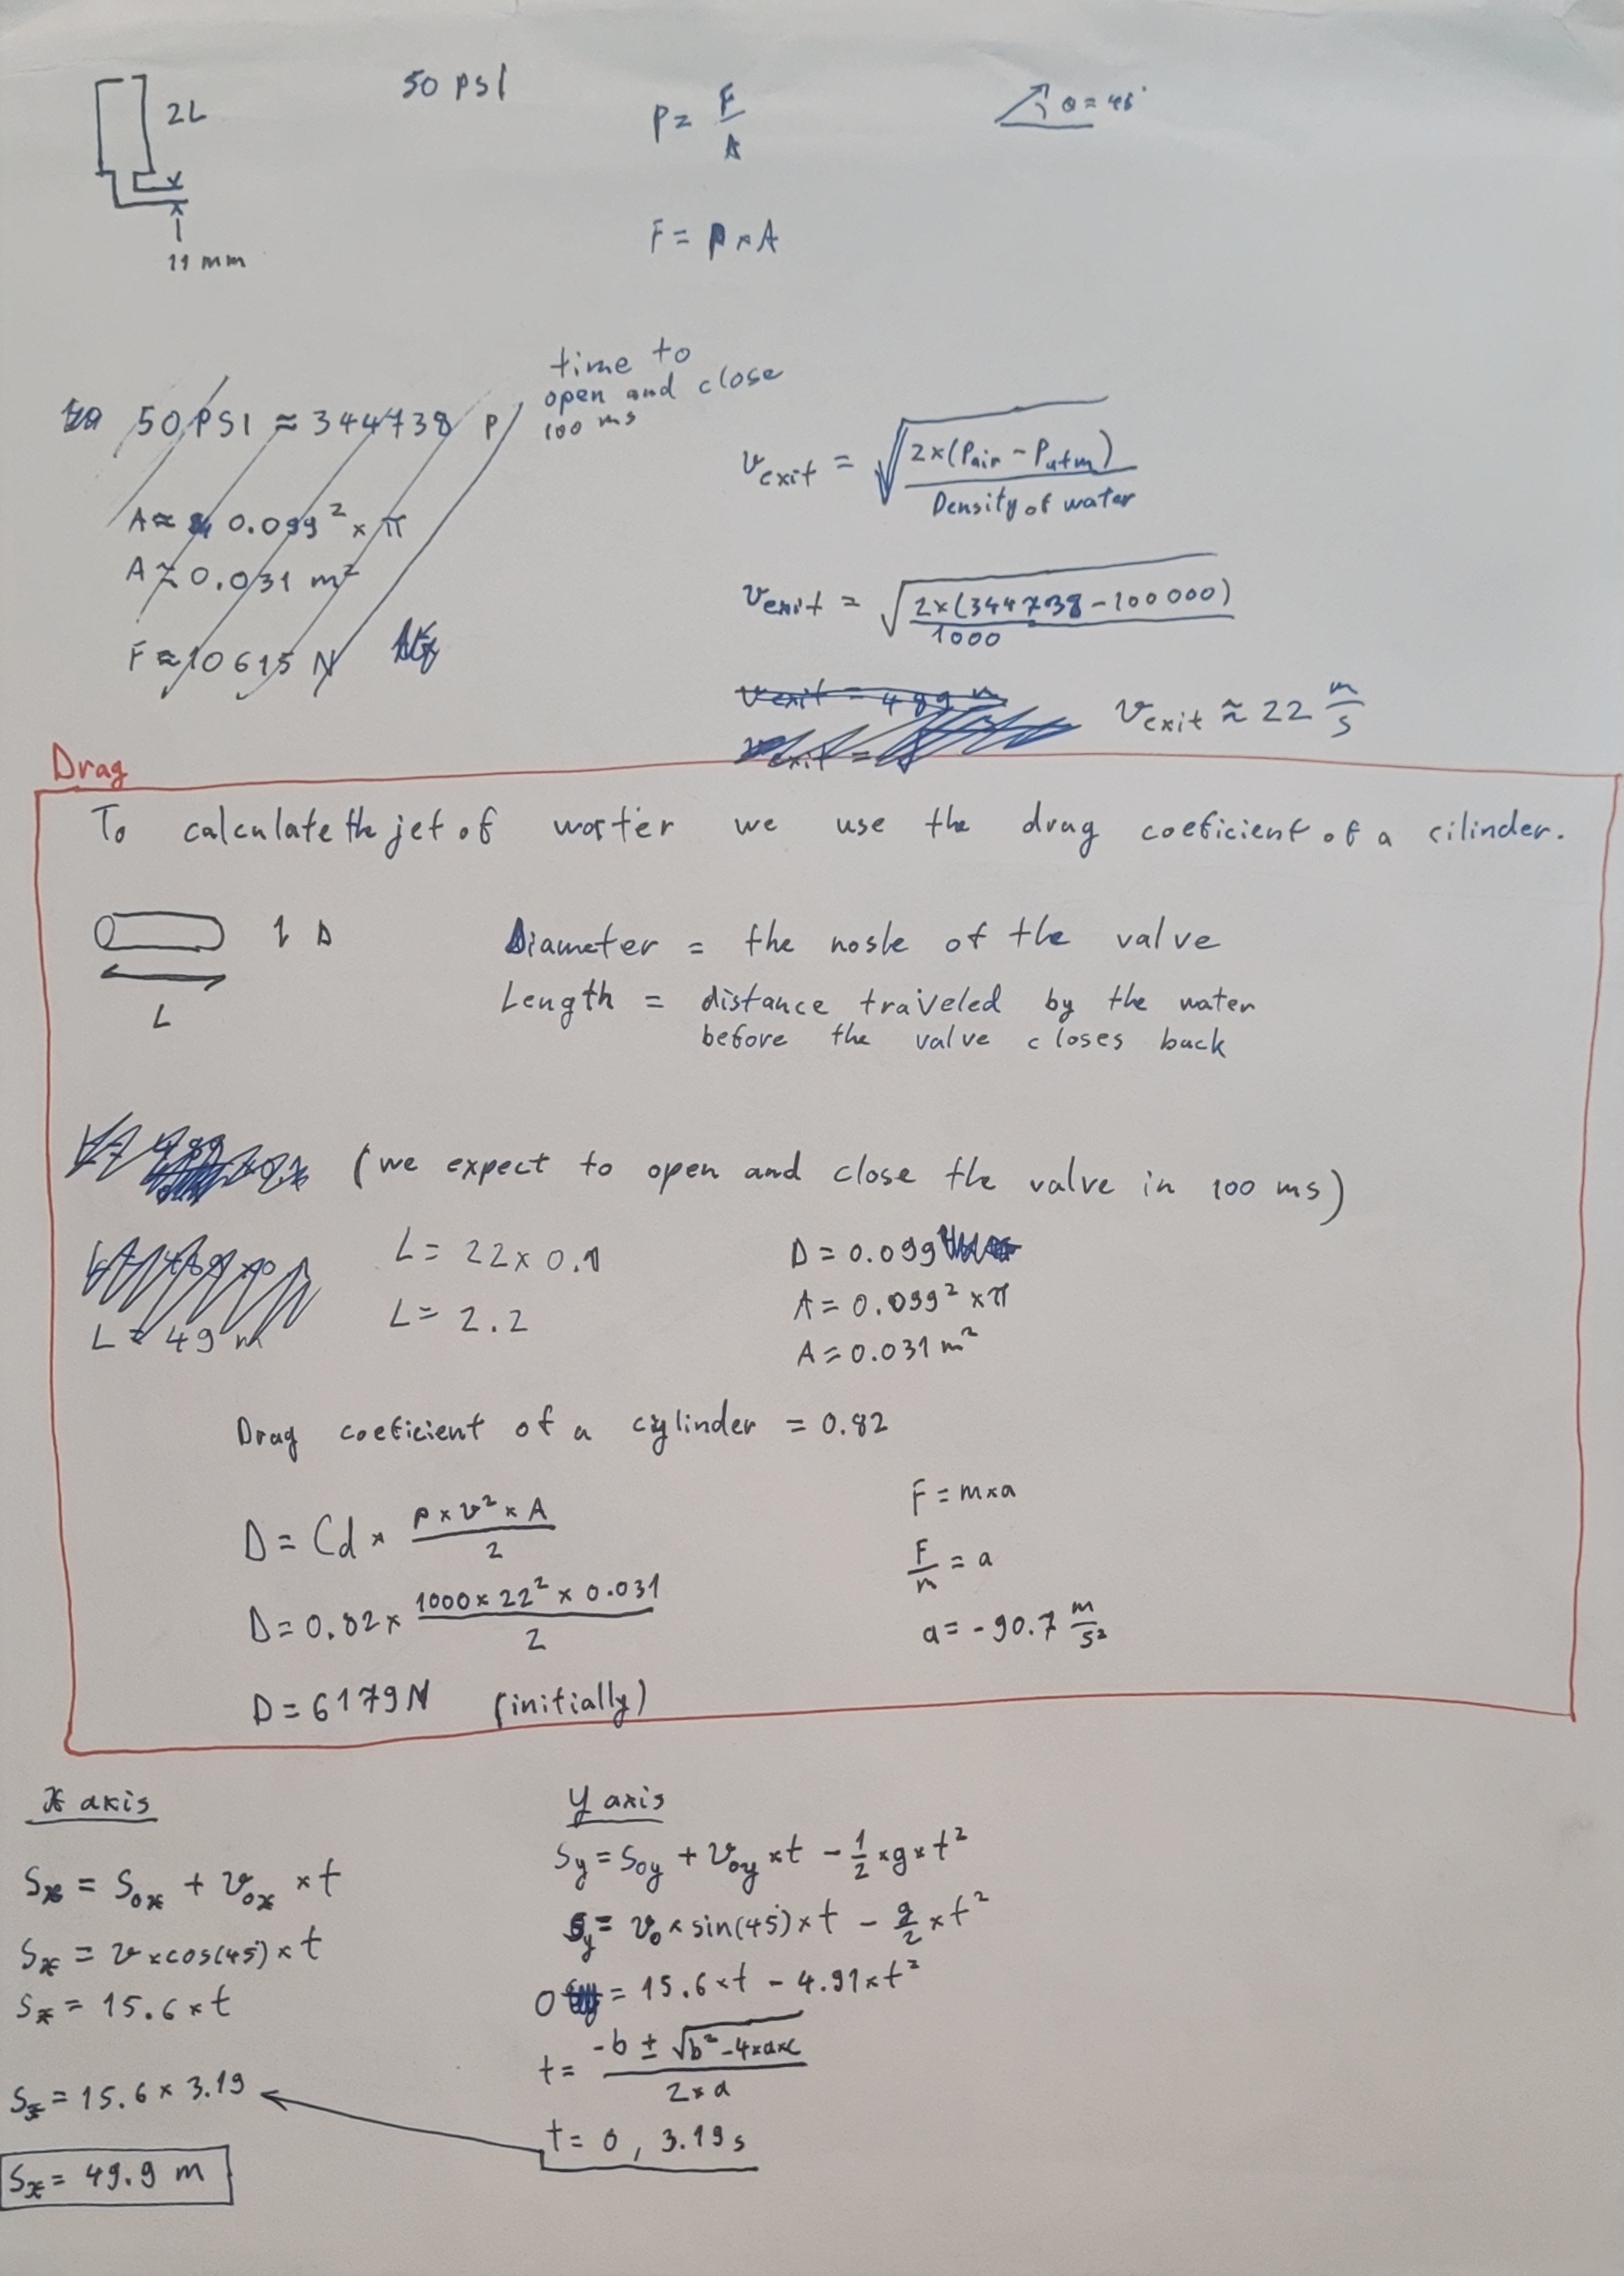 50 PSI
2L
P = F/A
θ = 45°
F = P × A
11 mm
time to
open and close
100 ms
50 PSI ≈ 344738 P
A ≈ 0.099² × π
A ≈ 0.031 m²
F ≈ 10615 N
v exit = √(2×(Pair - Patm) / Density of water)
v exit = √(2×(344738 - 100000) / 1000)
v exit = 489 m
v exit =
v exit ≈ 22 m/s
Drag
To calculate the jet of water we use the drag coeficient of a cilinder.
D
L
Diameter = the nosle of the valve
Length = distance traveled by the water
before the valve closes back
(we expect to open and close the valve in 100 ms)
L = 22 × 0.1
L = 2.2
L = 49 m
D = 0.099
A = 0.099² × π
A = 0.031 m²
Drag coeficient of a cylinder = 0.82
D = Cd × (ρ × v² × A) / 2
D = 0.82 × (1000 × 22² × 0.031) / 2
D = 6179 N (initially)
F = m×a
F/m = a
a = -90.7 m/s²
X axis
Sx = Sox + vox × t
Sx = v × cos(45) × t
Sx = 15.6 × t
Sx = 15.6 × 3.19
Sx = 49.9 m
Y axis
Sy = Soy + voy × t - 1/2 × g × t²
Sy = vo × sin(45) × t - g/2 × t²
0 = 15.6 × t - 4.91 × t²
t = (-b ± √(b² - 4×a×c)) / (2 × a)
t = 0, 3.19 s